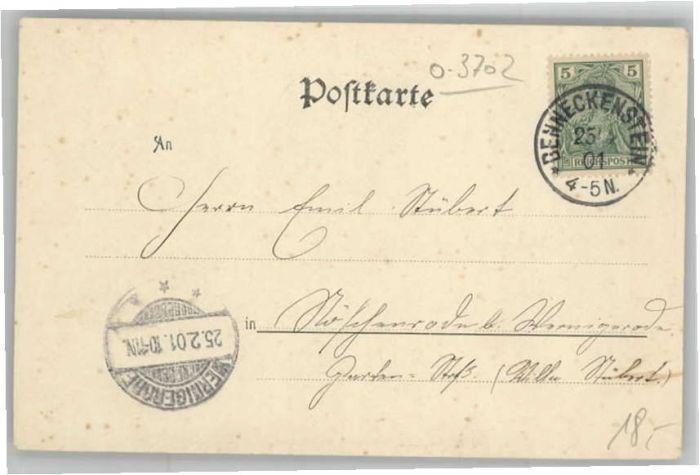 0-3702
Postkarte
5 5
REICHSPOST
BENNECKENSTEIN
25
01
4-5N.
An
Herrn Emil Stübert
in Nöschenrode b. Wernigerode.
Garten-Straß. (Villa Stübert.)
WERNIGERODE
25.2.01.10-11N.
18,-